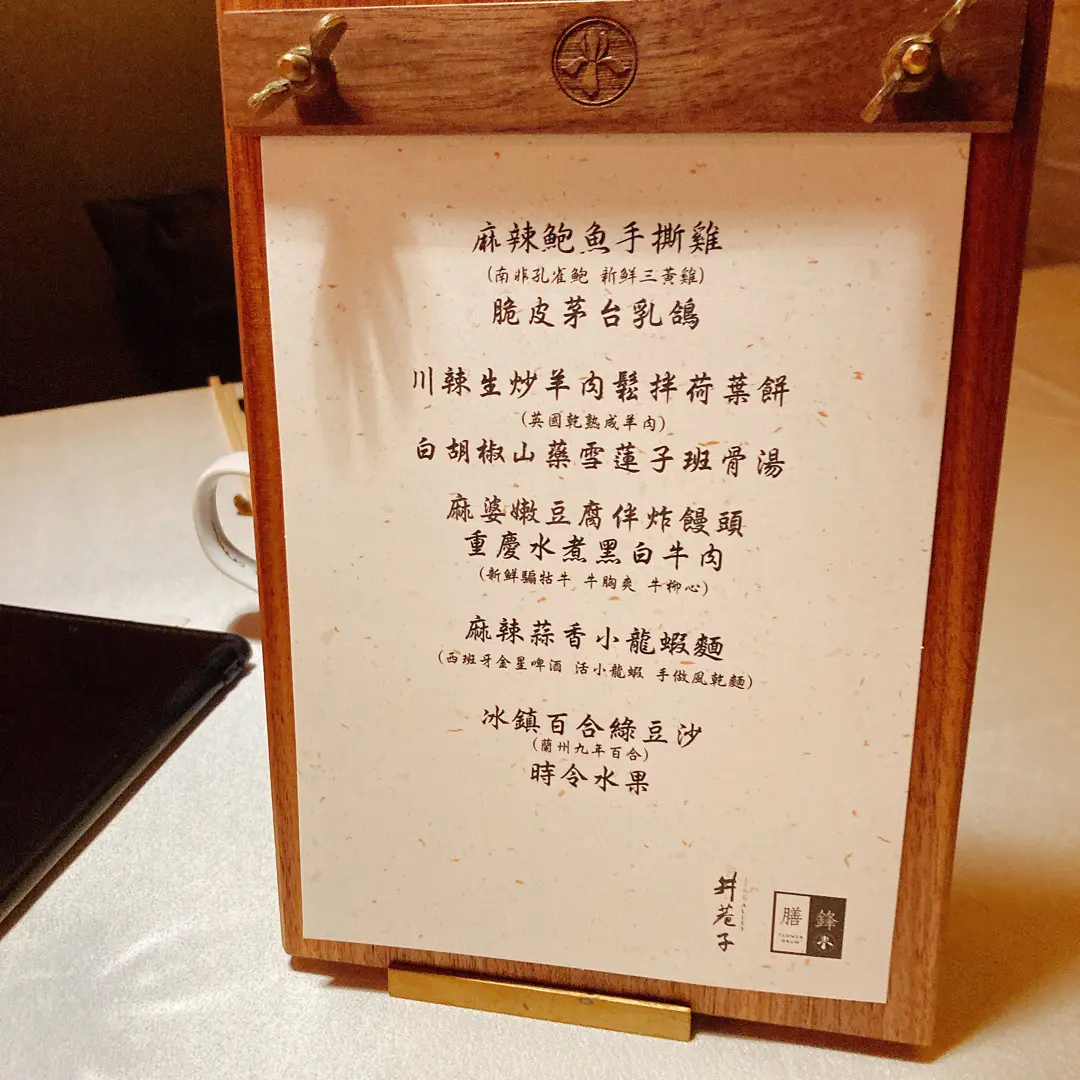 麻辣鮑魚手撕雞
(南非孔雀鮑 新鮮三黃雞)
脆皮茅台乳鴿
川辣生炒羊肉鬆拌荷葉餅
(英國乾熟成羊肉)
白胡椒山藥雪蓮子班骨湯
麻婆嫩豆腐伴炸饅頭
重慶水煮黑白牛肉
(新鮮騸牯牛 牛胸爽 牛柳心)
麻辣蒜香小龍蝦麵
(西班牙金星啤酒 活小龍蝦 手做風乾麵)
冰鎮百合綠豆沙
(蘭州九年百合)
時令水果
井巷子
膳
鋒